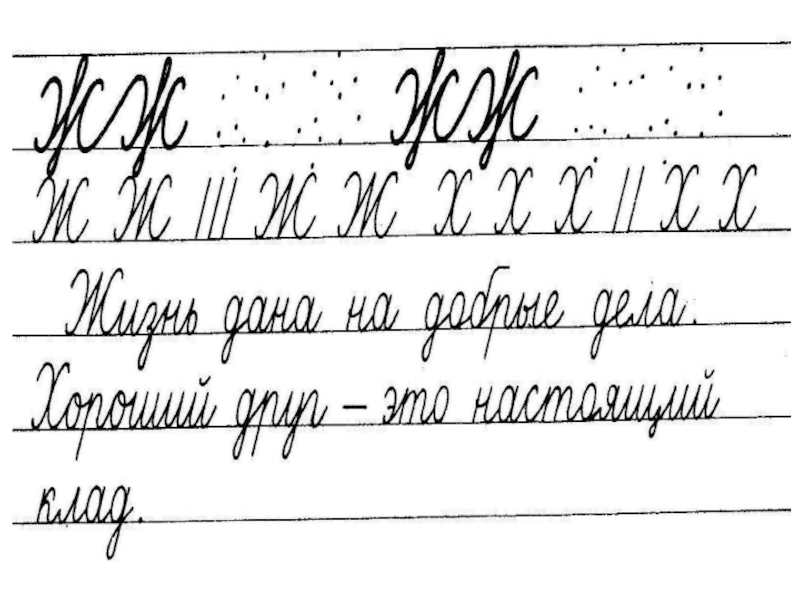 ЖЖ ЖЖ
Ж Ж /// Ж Ж Х Х Х // Х Х
Жизнь дана на добрые дела.
Хороший друг – это настоящий
клад.